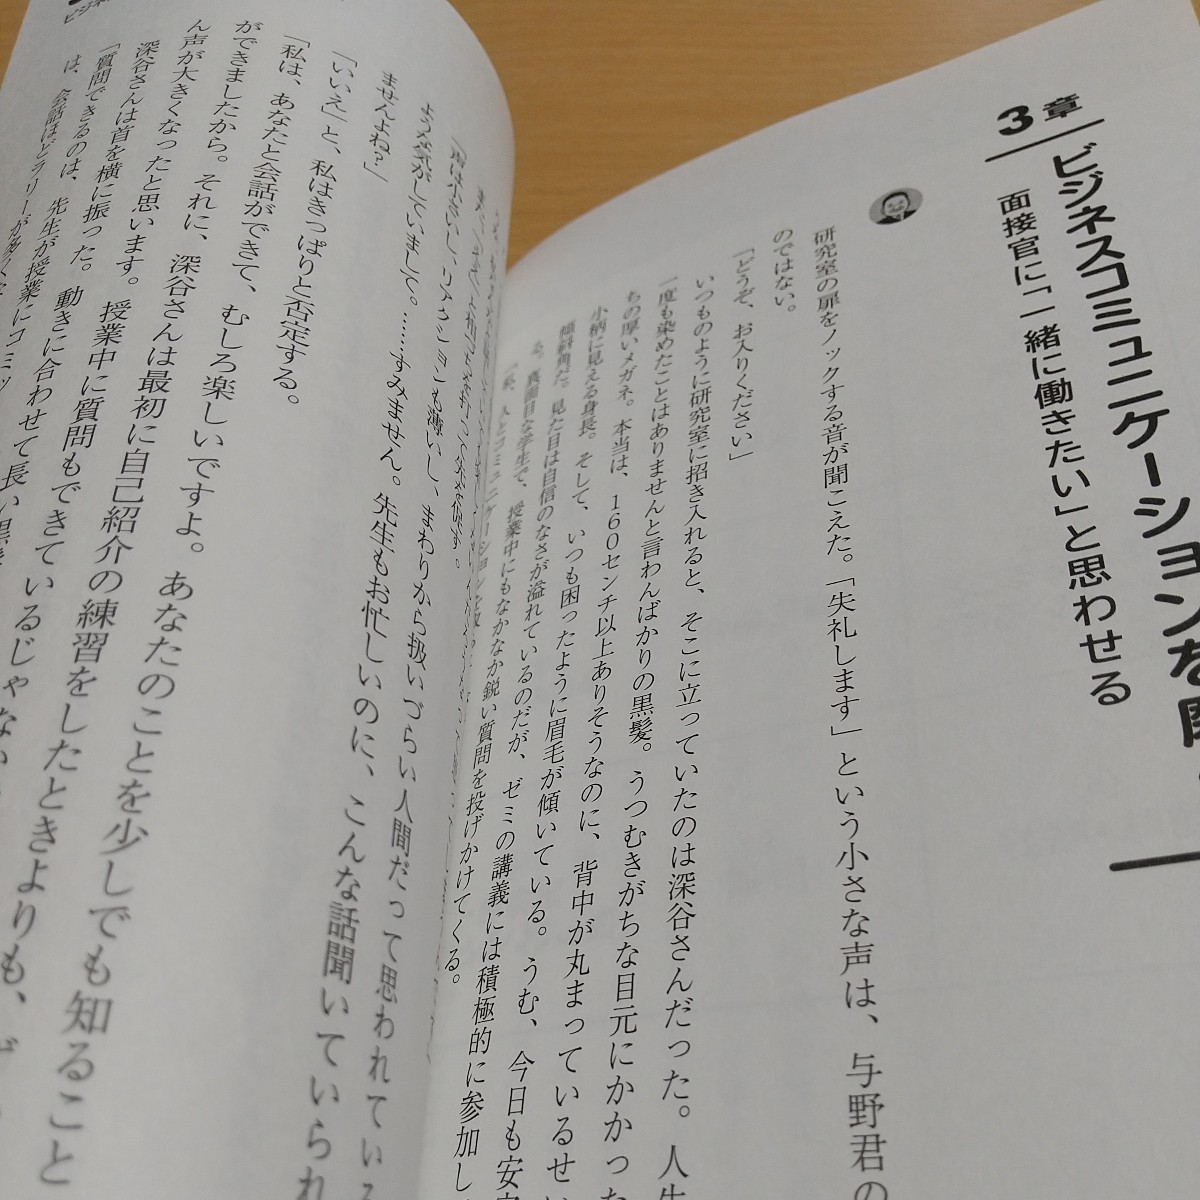 3章
ビジネスコミュニケーションを
面接官に「一緒に働きたい」と思わせる
研究室の扉をノックする音が聞こえた。「失礼します」という小さな声は、与野君の
のではない。
「どうぞ、お入りください」
いつものように研究室に招き入れると、そこに立っていたのは深谷さんだった。人生
一度も染めたことはありませんと言わんばかりの黒髪。うつむきがちな目元にかかった
ちの厚いメガネ。本当は、160センチ以上ありそうなのに、背中が丸まっているせい
小柄に見える身長。そして、いつも困ったように眉毛が傾いている。うむ、今日も安定
傾斜角だ。見た目は自信のなさが溢れているのだが、ゼミの講義には積極的に参加し
る。真面目な学生で、授業中にもなかなか鋭い質問を投げかけてくる。
「声は小さいし、リアクションも薄いし、まわりから扱いづらい人間だって思われている
ような気がしていまして。……すみません。先生もお忙しいのに、こんな話聞いていられ
ませんよね？」
「いいえ」と、私はきっぱりと否定する。
「私は、あなたと会話ができて、むしろ楽しいですよ。あなたのことを少しでも知ること
ができましたから。それに、深谷さんは最初に自己紹介の練習をしたときよりも、
ん声が大きくなったと思います。授業中に質問もできているじゃない
深谷さんは首を横に振った。動きに合わせて長い黒
「質問できるのは、先生が授業にコミッ
は、会話ほどラリーが多く